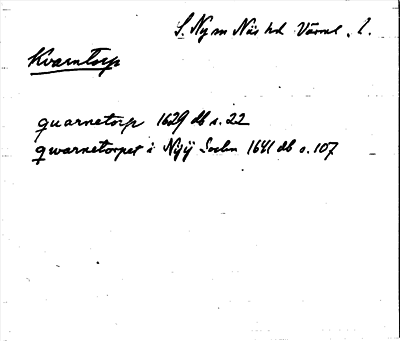 S. Ny m Näs hd Värml. l.
Kvarntorp
quarnetorp 1629 db s. 22
qwarnetorpet i Nyÿ Sochn 1641 db s. 107